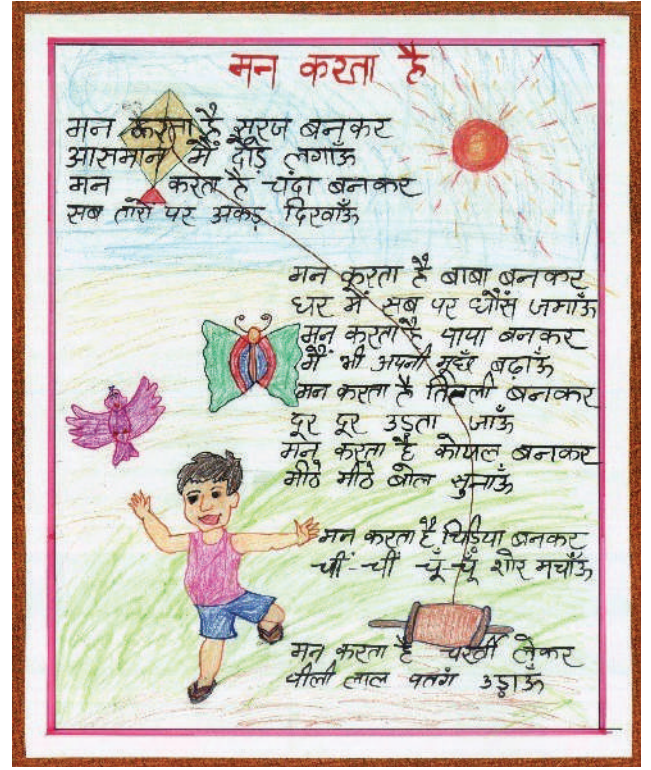 मन करता है
मन करता है सूरज बनकर
आसमान में दौड़ लगाऊँ
मन करता है चंदा बनकर
सब तारों पर अकड़ दिखाऊँ
मन करता है बाबा बनकर
घर में सब पर धौंस जमाऊँ
मन करता है पापा बनकर
मैं भी अपनी मूछँ बढ़ाऊँ
मन करता है तितली बनकर
दूर दूर उड़ता जाऊँ
मन करता है कोयल बनकर
मीठे मीठे बोल सुनाऊँ
मन करता है चिड़िया बनकर
चीं-चीं चूँ-चूँ शोर मचाँऊ
मन करता है चरखी लेकर
पीली लाल पतंग उड़ाऊँ